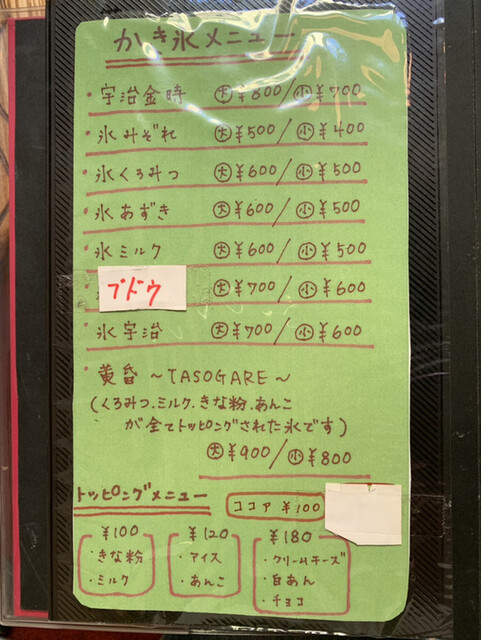 かき氷メニュー
・宇治金時 大¥800/小¥700
・氷みぞれ 大¥500/小¥400
・氷くろみつ 大¥600/小¥500
・氷あずき 大¥600/小¥500
・氷ミルク 大¥600/小¥500
ブドウ 大¥700/小¥600
氷宇治 大¥700/小¥600
・黄昏 ~TASOGARE~
(くろみつ.ミルク.きな粉.あんこ
が全てトッピングされた氷です)
大¥900/小¥800
トッピングメニュー
ココア ¥100
¥100
・きな粉
・ミルク
¥120
・アイス
・あんこ
¥180
・クリームチーズ
・白あん
・チョコ